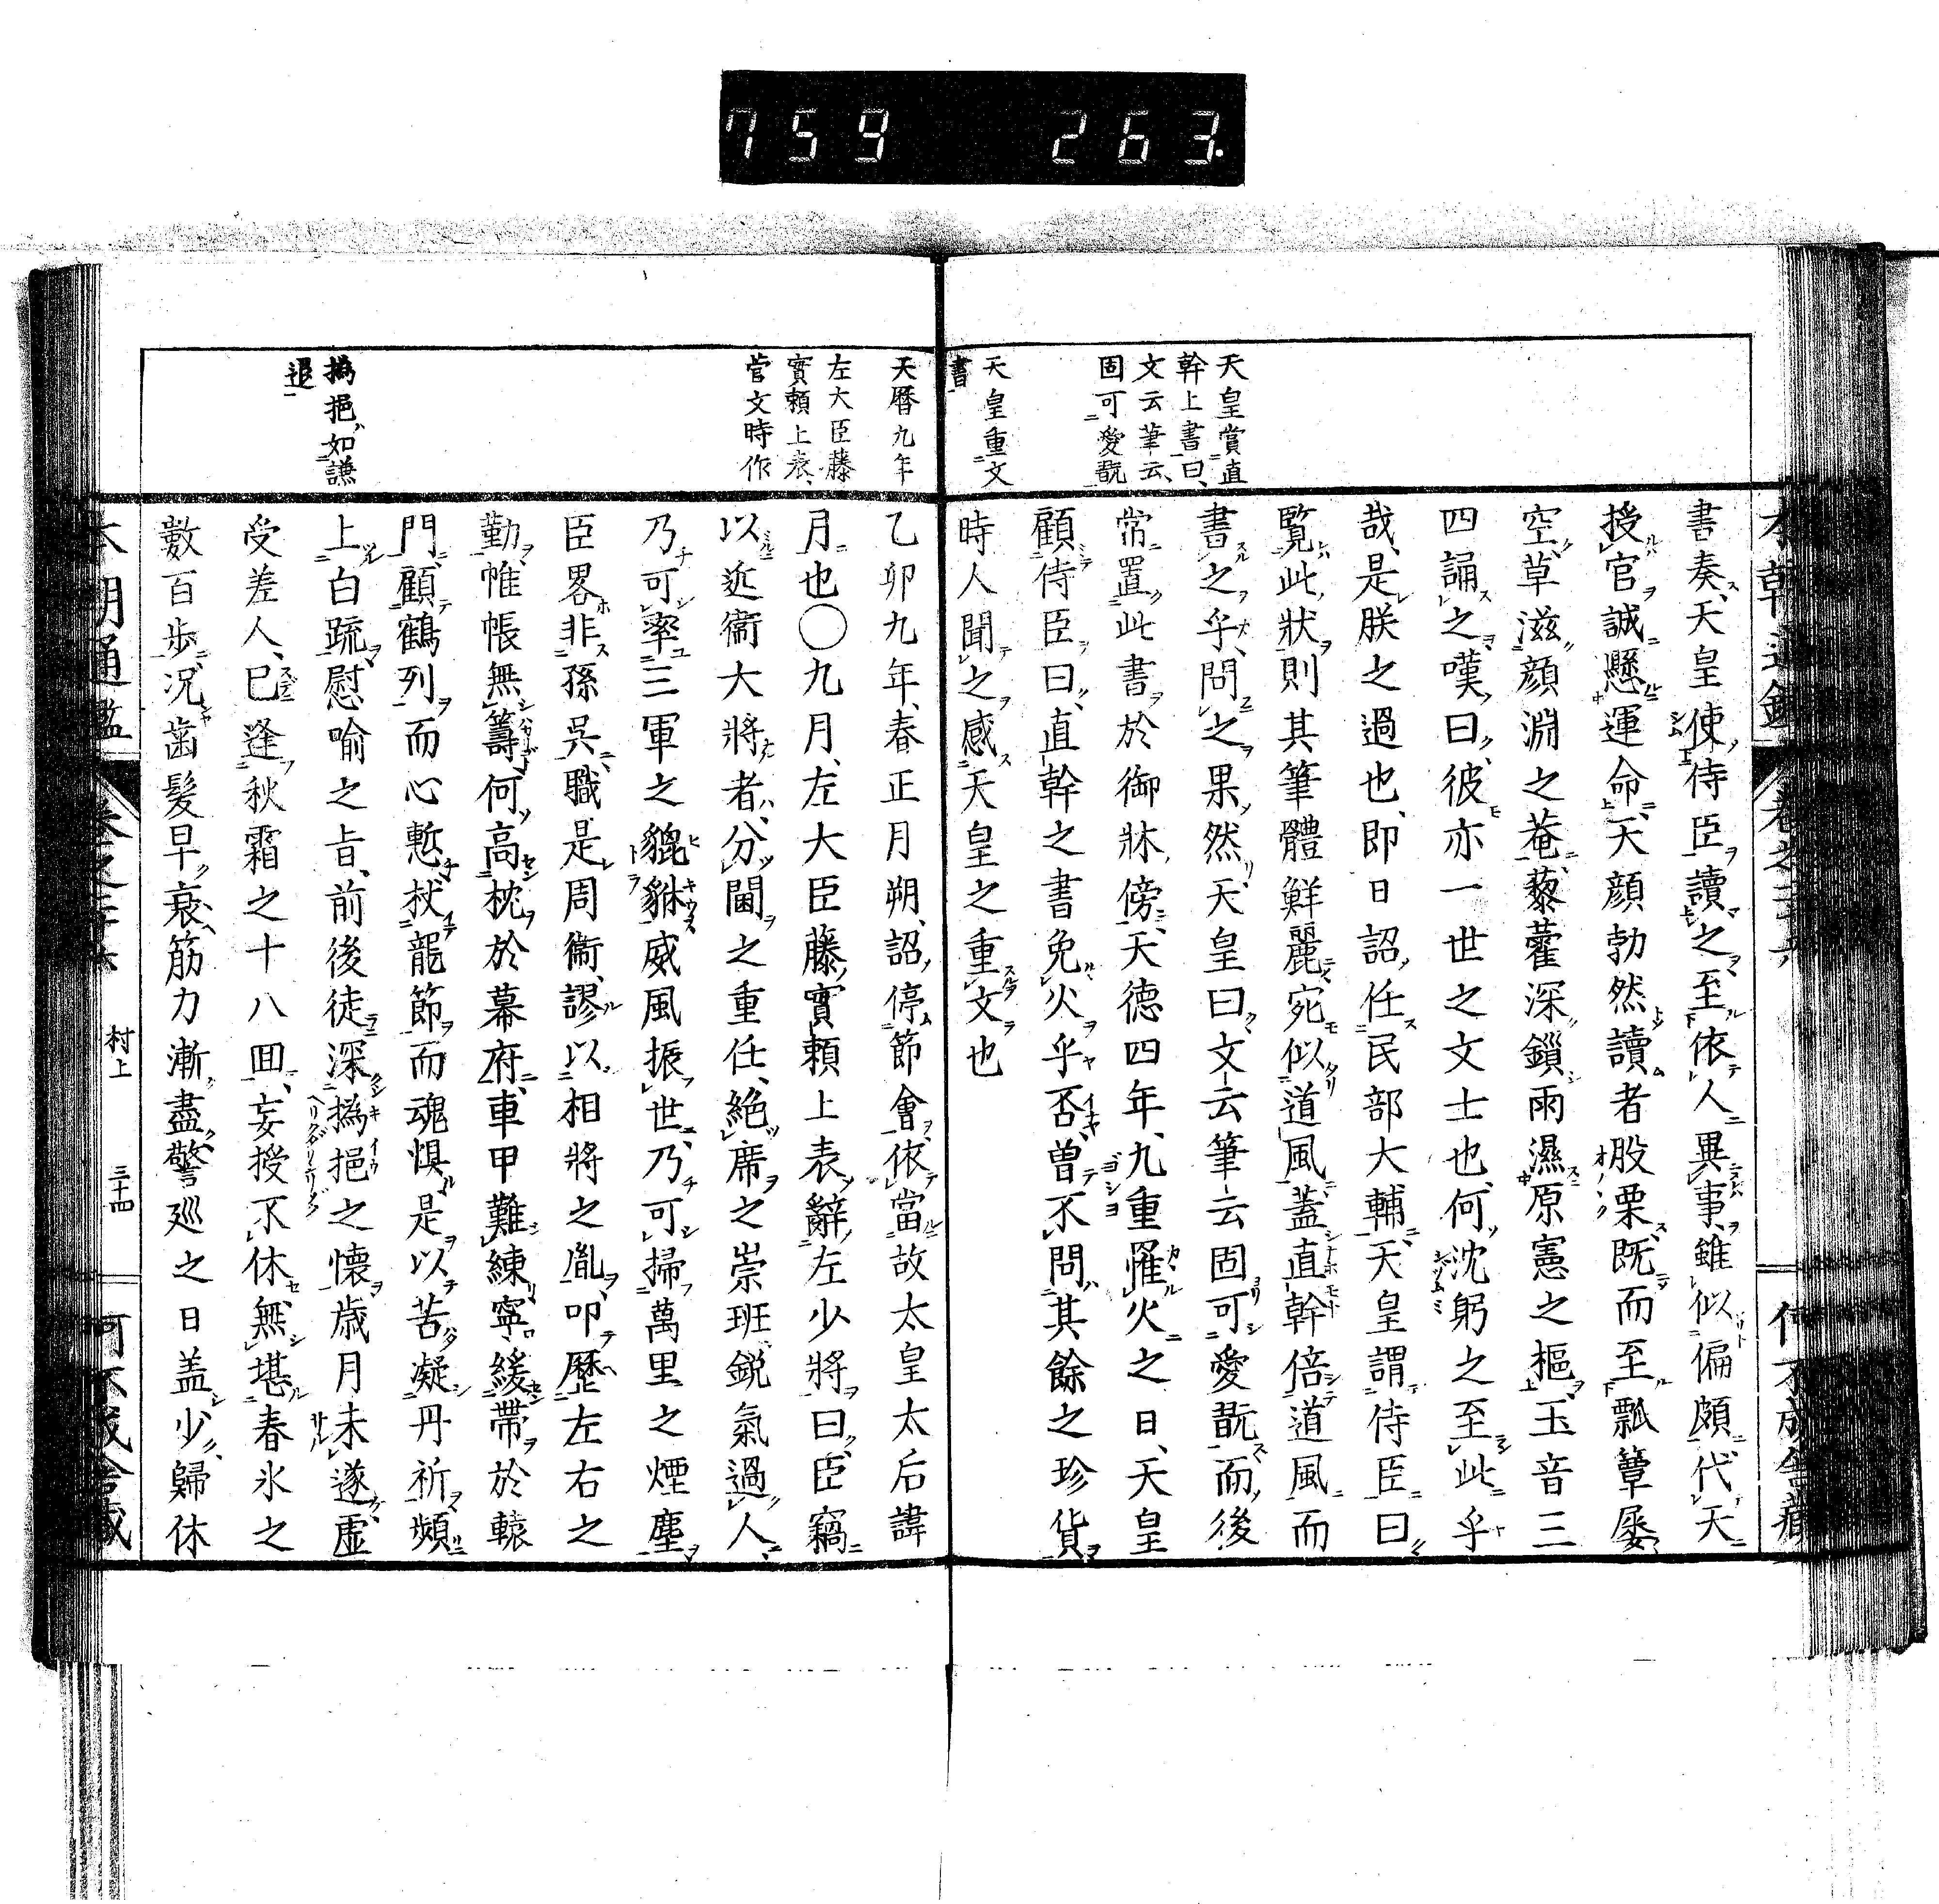 759 263.
天皇賞直
幹上書曰、
文云筆云、
固可愛翫
天皇重文
書
書奏、天皇使侍臣讀之至依人異事、雖似偏頗代天
授官誠懸運命、天顔勃然讀者股栗、既而至瓢簞屡
空、草滋顔淵之菴、藜藿深鎖雨濕原憲之樞、玉音三
四誦之嘆曰、彼亦一世之文士也、何沈躬之至此乎
哉、是朕之過也、即日詔任民部大輔、天皇謂侍臣曰
覧此狀則其筆體鮮麗宛似道風、蓋直幹倍道風而
書之乎、問之果然、天皇曰文云筆云固可愛翫、而後
常置此書於御牀傍、天德四年、九重罹火之日、天皇
顧侍臣曰、直幹之書免火乎否、曽不問其餘之珍貨
時人聞之感天皇之重文也
天曆九年
左大臣藤
實頼上表、
菅文時作
撝挹、如謙
退
乙卯九年、春正月朔、詔停節會、依當故太皇太后諱
月也〇九月、左大臣藤實頼上表辭左少將曰、臣竊
以近衞大將者、分閫之重任、絶席之崇班、鋭氣過人、
乃可率三軍之貔貅、威風振世、乃可掃萬里之煙塵
臣畧非孫吳、職是周衞、謬以相將之胤、叩歴左右之
勤、帷帳無籌、何高枕於幕府、車甲難練、寧緩帶於轅
門、顧鶴列而心慙、杖龍節而魂惧、是以苦凝丹祈、頻
上白䟽、慰喩之旨、前後徒深、撝挹之懷、歳月未遂、虚
受差人、已逢秋霜之十八囬、妄授不休、無堪春氷之
數百歩、況齒髮早衰、筋力漸盡、警巡之日盖少、歸休
本朝通鑑
村上
三十四